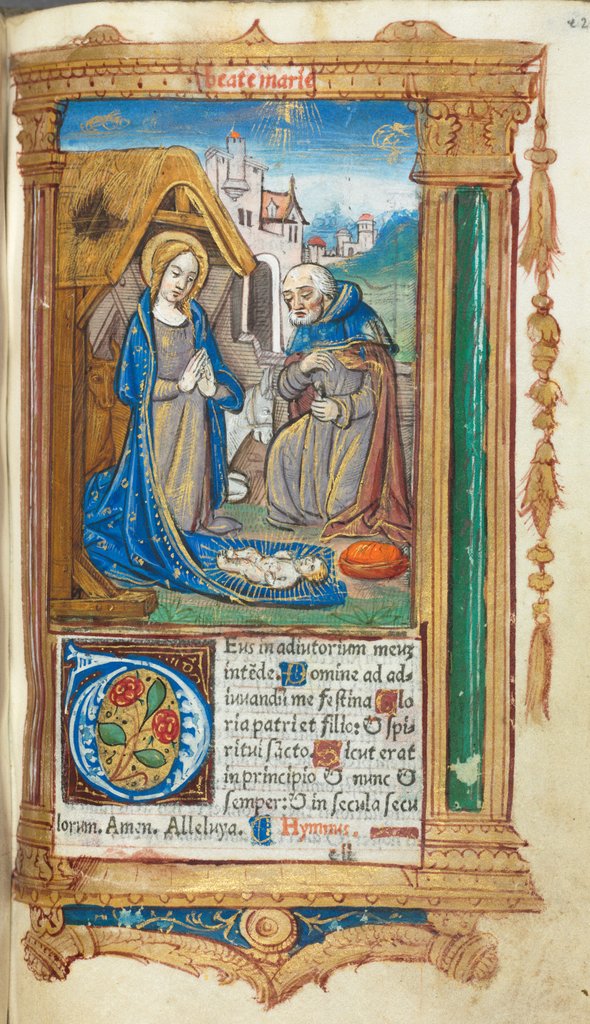 e 2
beate marie
DEus in adiutorium meuʒ
intẽde. Domine ad ad-
iuuandũ me festina Glo
ria patri et filio: & spi
ritui sãcto. Sicut erat
in principio & nunc &
semper: & in secula secu
lorum. Amen. Alleluya. Hymnus.
e ii